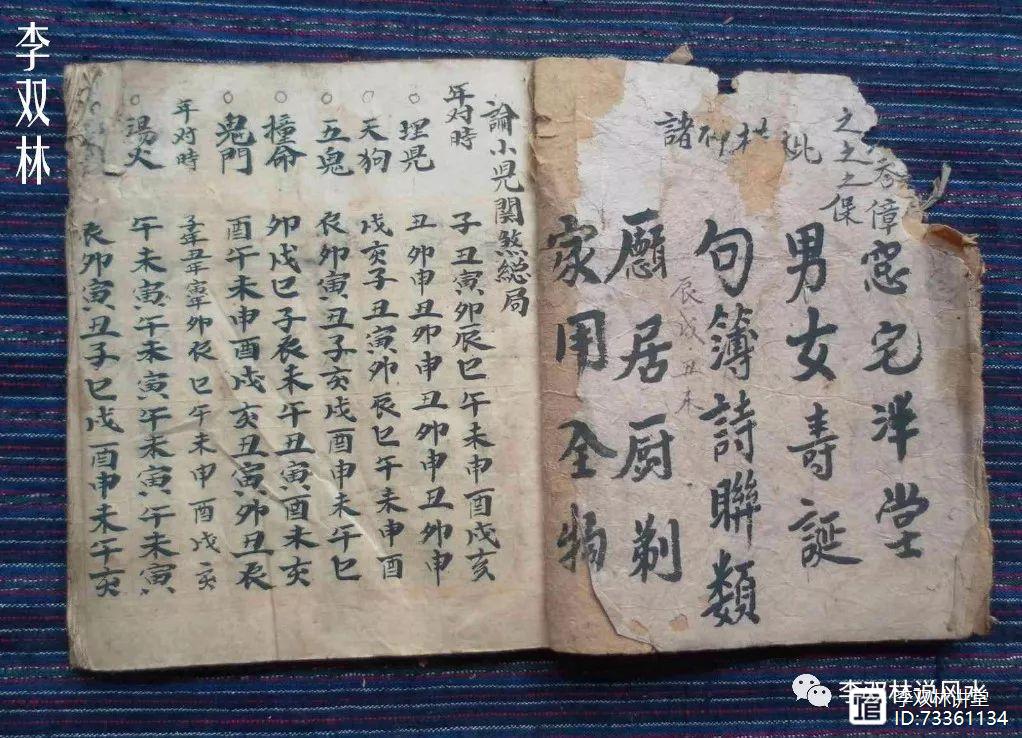 李双林
之之之保
宅洋堂
男女寿誕
句簿詩聯類
辰戌丑未
居厨剃
家用全物
諸
論小児関煞総局
年对時 子丑寅卯辰巳午未申酉戌亥
埋児 丑卯申丑卯申丑卯申丑卯申
天狗 戌亥子丑寅卯辰巳午未申酉
五鬼 辰卯寅丑子亥戌酉申未午巳
撞命 卯戌巳子辰未午丑寅酉未亥
鬼門 酉午未申酉戌亥丑寅卯丑辰
年对時 子年丑年寅年卯辰巳午未申酉戌亥
湯火 午未寅午未寅午未寅午未寅
辰卯寅丑子巳戌酉申未午亥
李双林说风水
李双林讲堂
ID:73361134